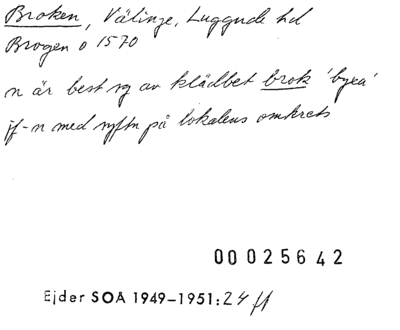 Broken, Välinge, Luggude hd
Brogen o 1570
n är best sg av klädbet brok 'byxa'
jf-n med syftn på lokalens omkrets
00025642
Ejder SOA 1949-1951: 24 ff